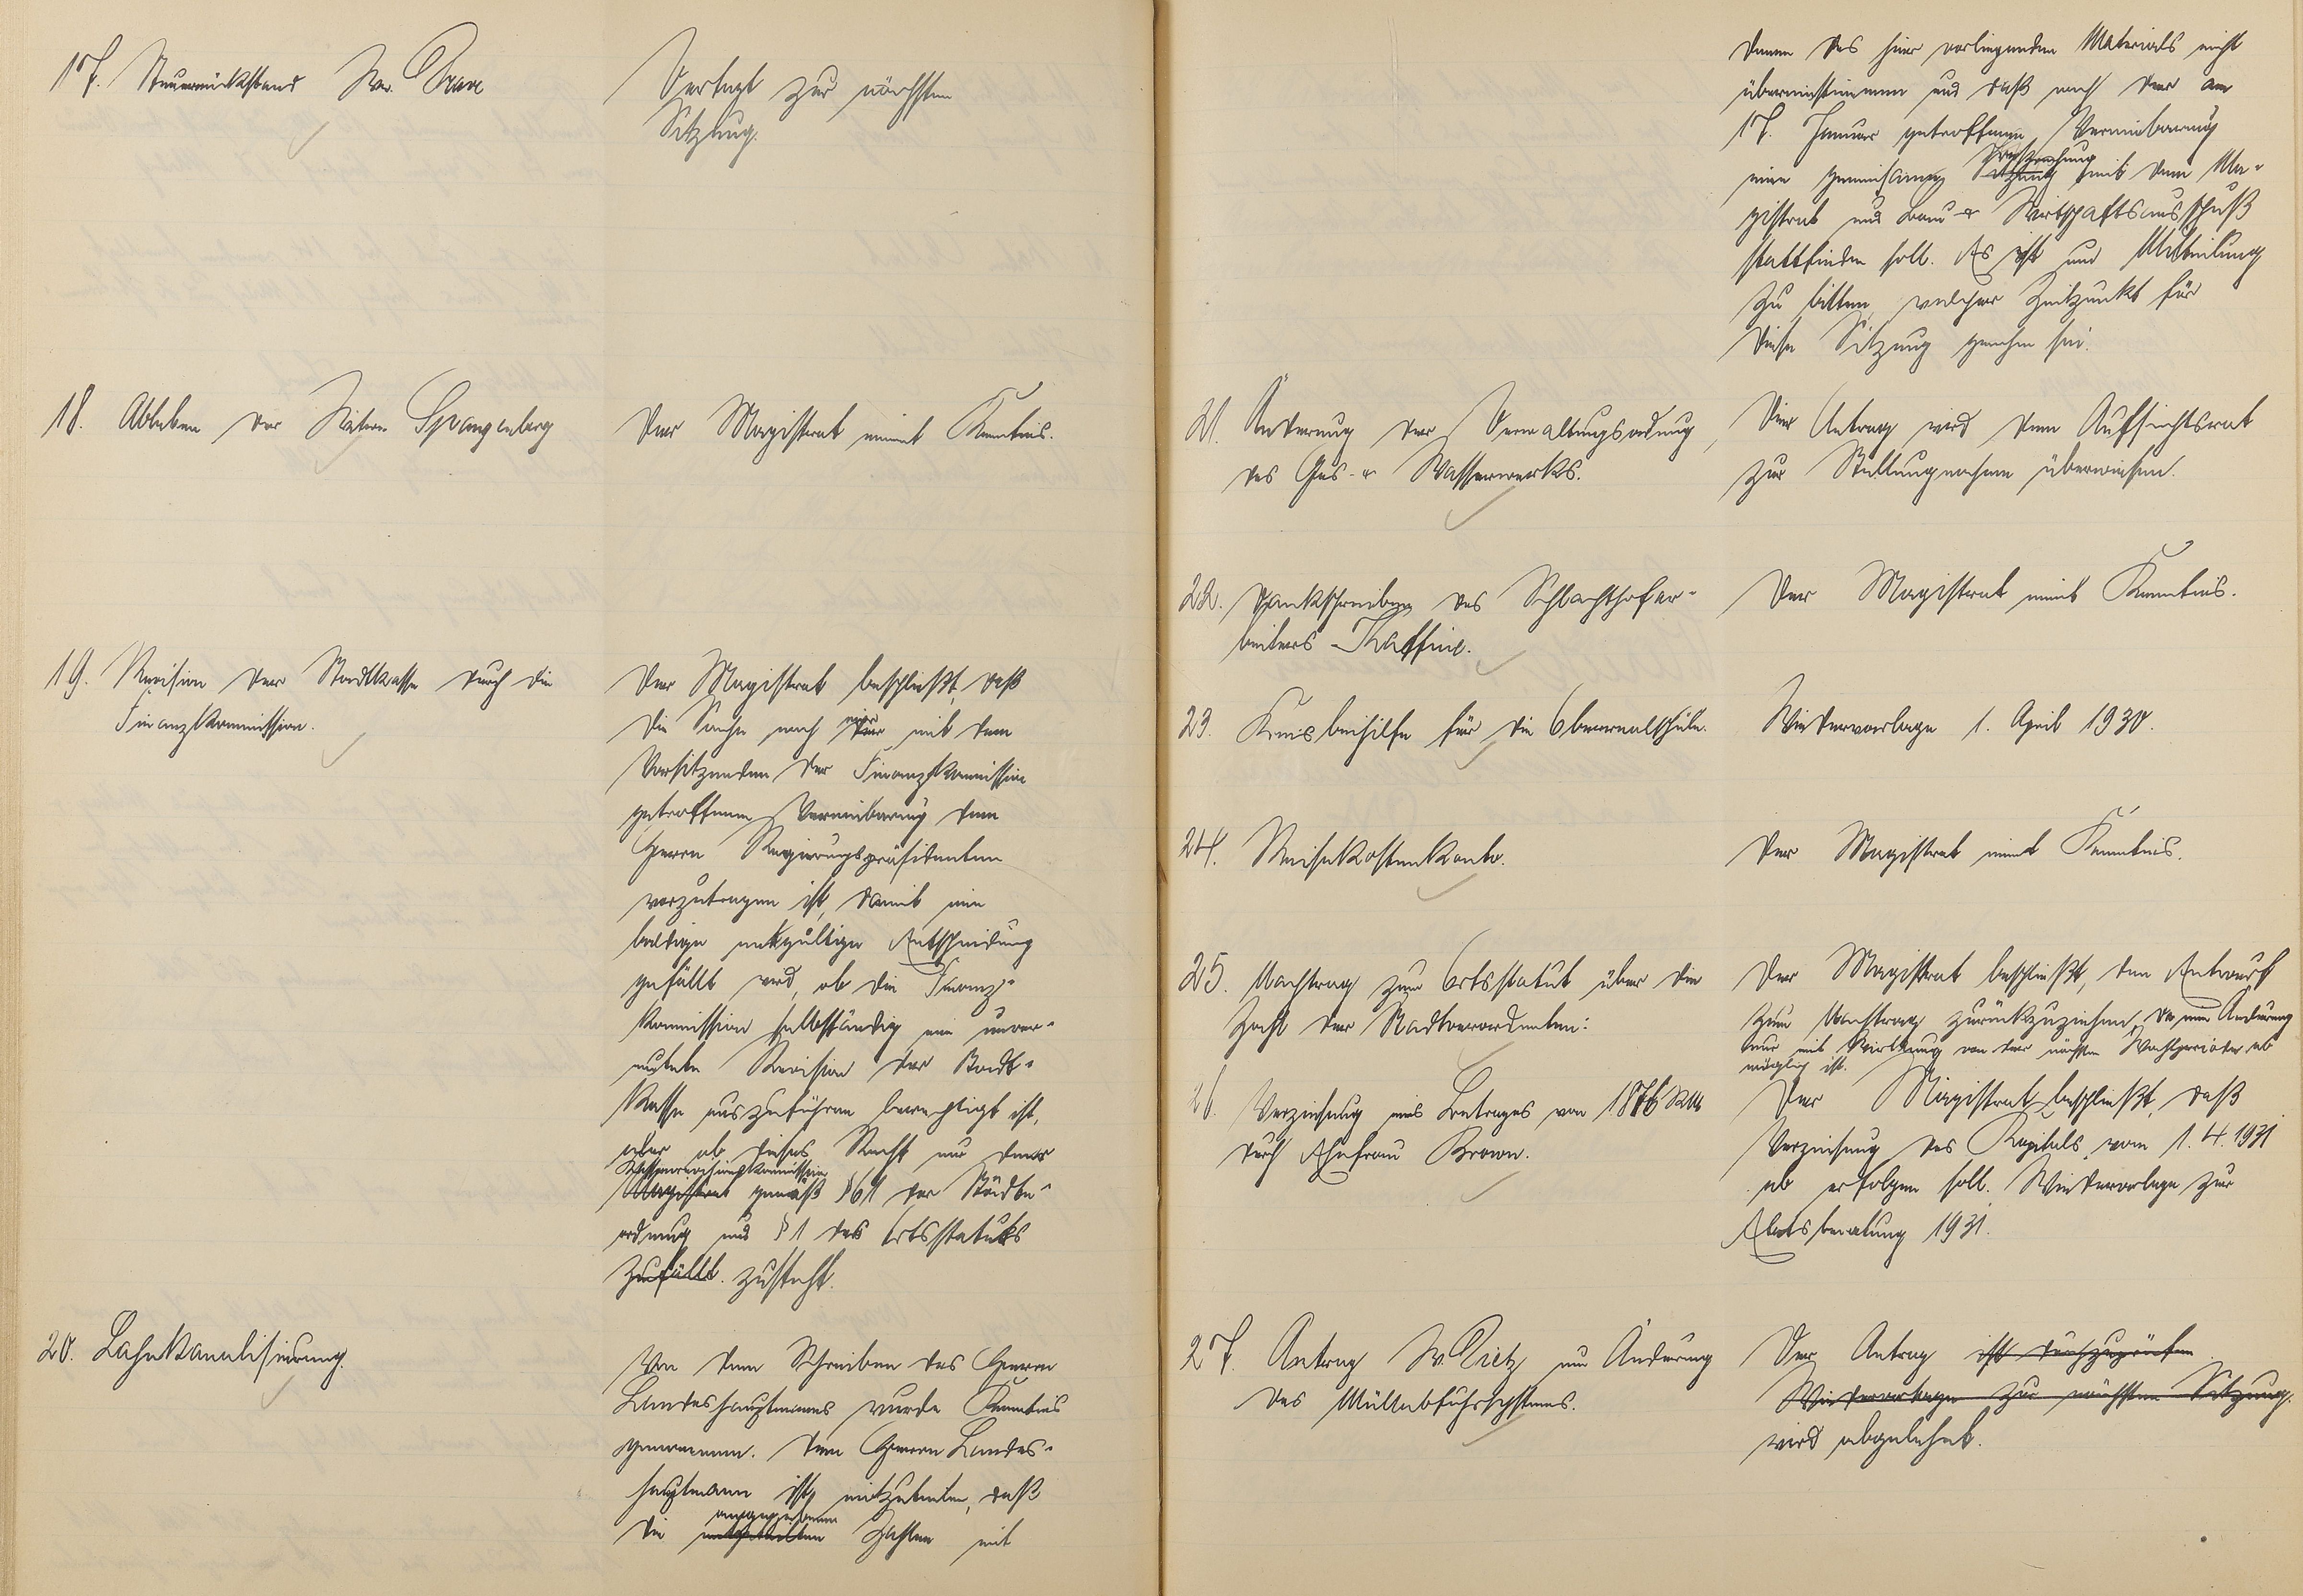 17. Steuerrückstand Dr. Grave
Vertagt zur nächsten
Sitzung.
18. Ableben der Spangenberg
Der Magistrat nimmt Kenntnis.
19. Revision der Stadtkasse durch die
Finanzkommission.
Der Magistrat beschließt, daß
die Sache nach der mit dem
Vorsitzenden der Finanzkommission
getroffenen Vereinbarung dem
Herrn Regierungspräsidenten
vorzutragen ist, damit eine
baldige entgültige Entscheidung
gefällt wird, ob die Finanz-
kommission selbständig eine unver-
mutete Revision der Stadt-
kasse auszuführen berechtigt ist,
oder ob dieses Recht nur der
Kassenrevisionskommission
Magistrat gemäß § 61 der Städte-
ordnung und § 1 des Ortsstatuts
zufällt. zusteht.
20. Lahnkanalisierung.
Von dem Schreiben des Herrn
Landeshauptmanns wurde Kenntnis
genommen. Dem Herrn Landes-
hauptmann ist mitzuteilen, daß
angegebenen
die mitgeteilten Zahlen mit
denen des hier vorliegenden Materials nicht
übereinstimmen und daß nach der am
17. Januar getroffenen Vereinbarung
Besprechung
eine gemeinsame Sitzung mit dem Ma-
gistrat und Bau- & Wirtschaftsausschuß
stattfinden soll. Es ist um Mitteilung
zu bitten, welcher Zeitpunkt für
diese Sitzung genehm sei.
21. Änderung der Verwaltungsordnung
des Gas- & Wasserwerks.
Der Antrag wird dem Aufsichtsrat
zur Stellungnahme überwiesen.
22. Dankschreiben des Schlachthofar-
beiters Kaffine.
Der Magistrat nimmt Kenntnis.
23. Kreisbeihilfe für die Oberrealschule.
Wiedervorlage 1. April 1930.
24. Reisekostenkonto.
Der Magistrat nimmt Kenntnis.
25. Nachtrag zum Ortsstatut über die
Zahl der Stadtverordneten:
Der Magistrat beschließt, den Entwurf
zum Nachtrag zurückzuziehen, da eine Änderung
nur mit Wirkung von der nächsten Wahlperiode ab
möglich ist.
26. Verzinsung eines Betrages von 1876 RM
durch Ehefrau Brown.
Der Magistrat beschließt, daß
Verzinsung des Kapitals vom 1.4.1931
ab erfolgen soll. Wiedervorlage zur
Etatsberatung 1931.
27. Antrag Dr. Rietz um Änderung
des Müllabfuhrsystems.
Der Antrag ist durchzuprüfen
Wiedervorlage zur nächsten Sitzung.
wird abgelehnt.